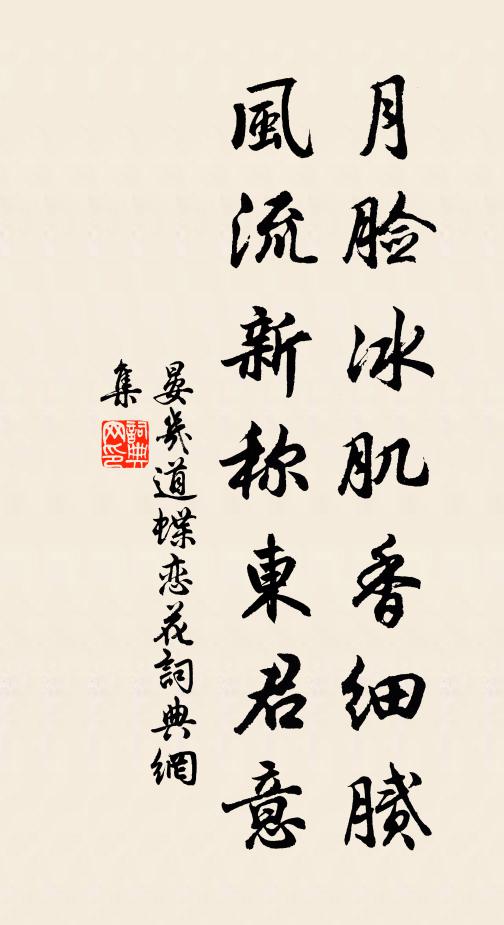 月脸冰肌香细腻
風流新称東君意
晏幾道蝶恋花詞典網
集
詞典網印